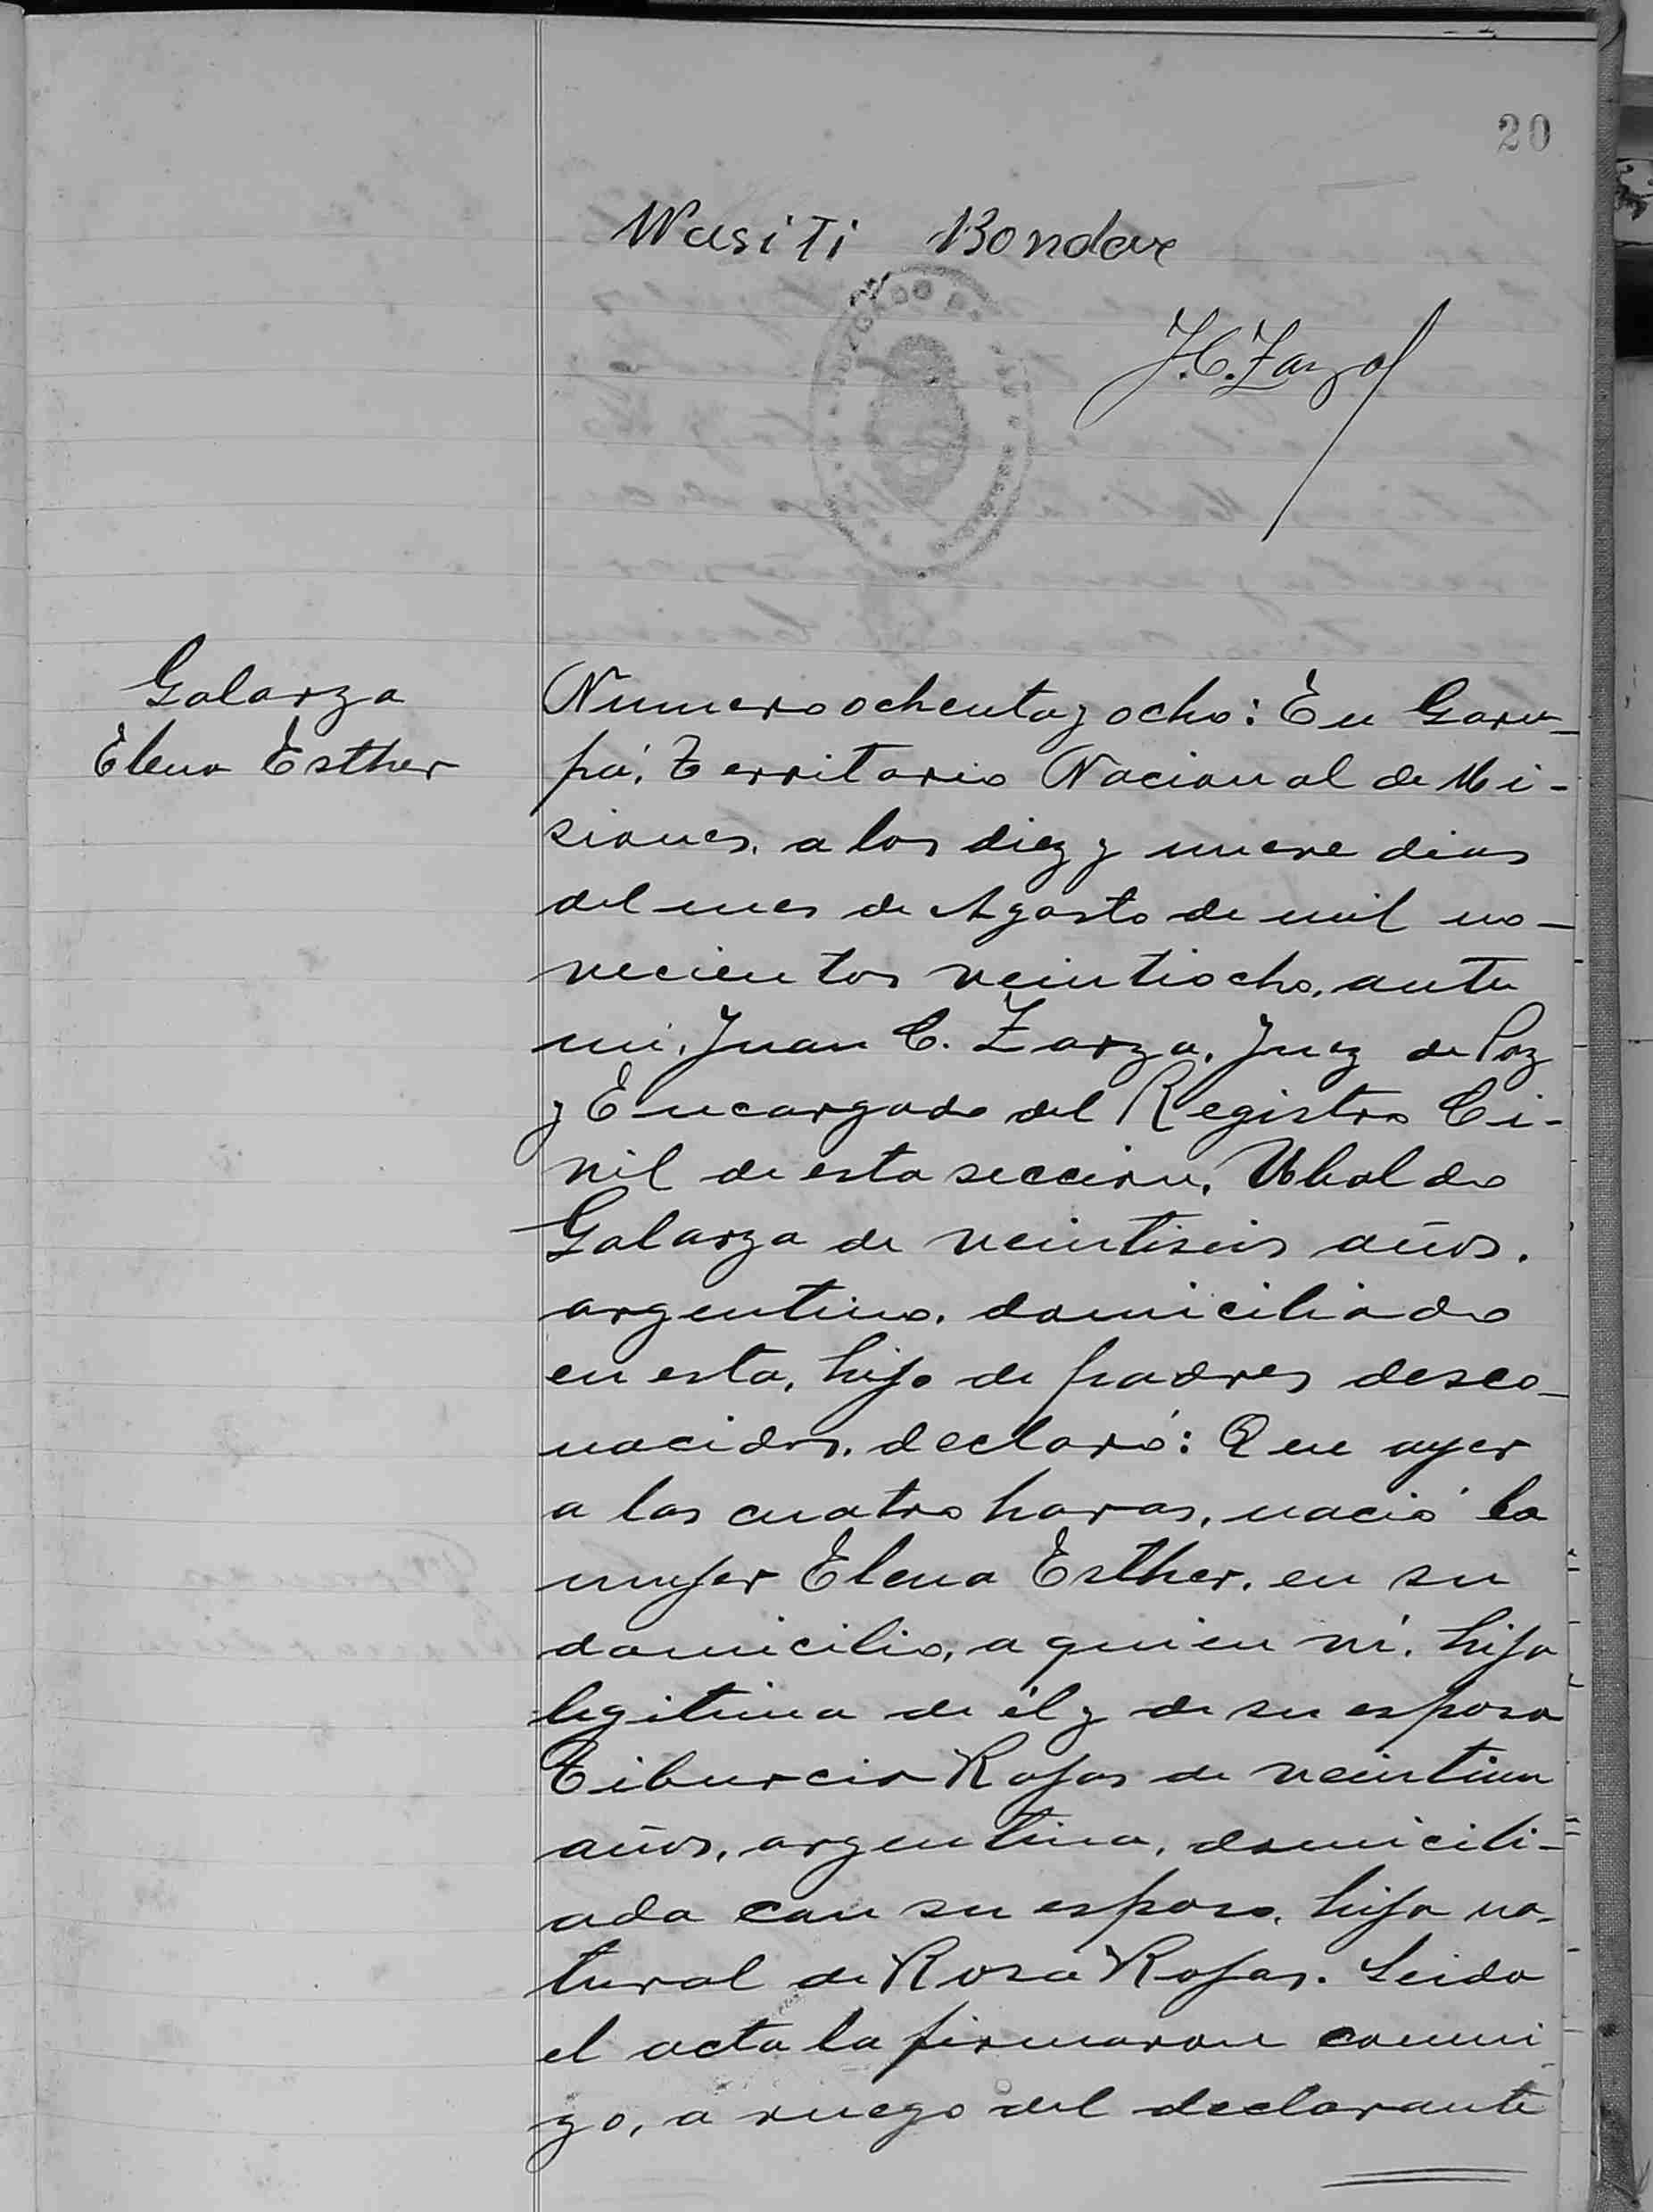 20
Wasiti Bondar
JUZGADO DE
J.C. Zarza
Galarza
Elena Esther
Numero ochenta y ocho: En Garu-
pá, Territorio Nacional de Mi-
siones, a los diez y nueve dias
del mes de Agosto de mil no-
vecientos veintiocho, ante
mi, Juan C. Zarza, Juez de Paz
y Encargado del Registro Ci-
vil de esta seccion, Ubaldo
Galarza de veintiseis años,
argentino, domiciliado
en esta, hijo de padres desco-
nocidos, declaró: Que ayer
a las cuatro horas, nació la
mujer Elena Esther, en su
domicilio, a quien ví, hija
legitima de él y de su esposa
Tiburcia Rojas de veintiun
años, argentina, domicili-
ada con su esposo, hija na-
tural de Rosa Rojas. Leida
el acta la firmaron conmi
go, a ruego del declarante